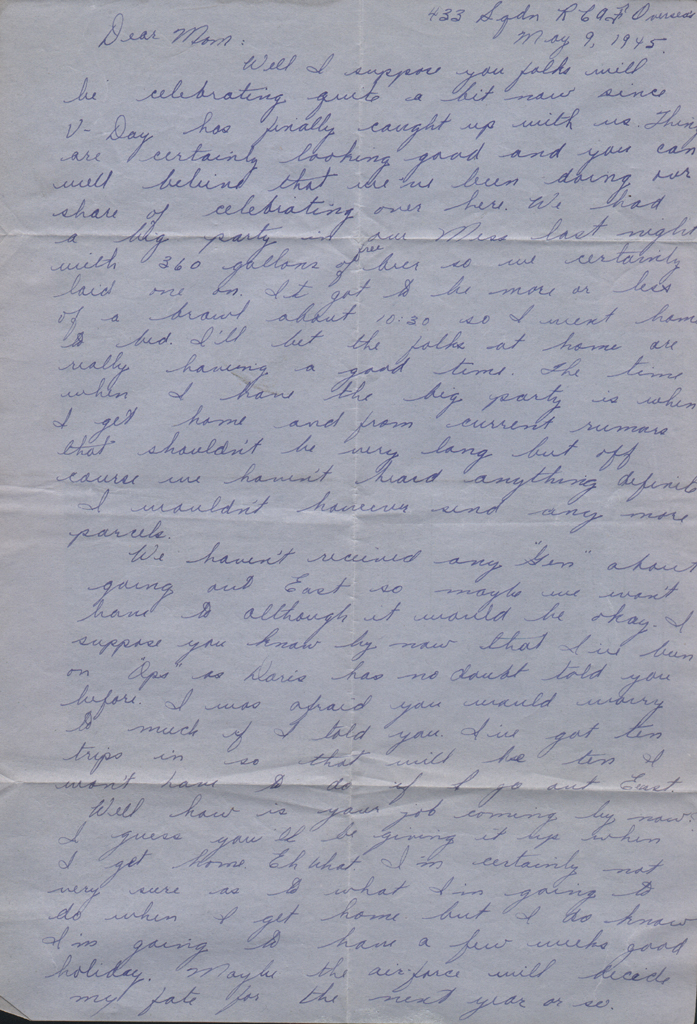 433 Sqdn RCAF Overseas
May 9, 1945.
Dear Mom:
Well I suppose you folks will
be celebrating quite a bit now since
V-Day has finally caught up with us. Things
are certainly looking good and you can
well believe that we've been doing our
share of celebrating over here. We had
a big party in our Mess last night
with 360 gallons of free beer so we certainly
laid one on. It got to be more or less
of a brawl about 10:30 so I went home
to bed. I'll bet the folks at home are
really having a good time. The time
when I have the big party is when
I get home and from current rumors
that shouldn't be very long but off
course we haven't heard anything definite
I wouldn't however send any more
parcels.
We haven't received any "Gen" about
going out East so maybe we won't
have to although it would be okay. I
suppose you know by now that I've been
on Ops as Doris has no doubt told you
before. I was afraid you would worry
to much if I told you. I've got ten
trips in so that will be ten I
won't have to do if I go out East.
Well how is your job coming by now.
I guess you'll be giving it up when
I get home. Eh what I'm certainly not
very sure as to what I'm going to
do when I get home but I do know
I'm going to have a few weeks good
holiday. Maybe the airforce will decide
my fate for the next year or so.